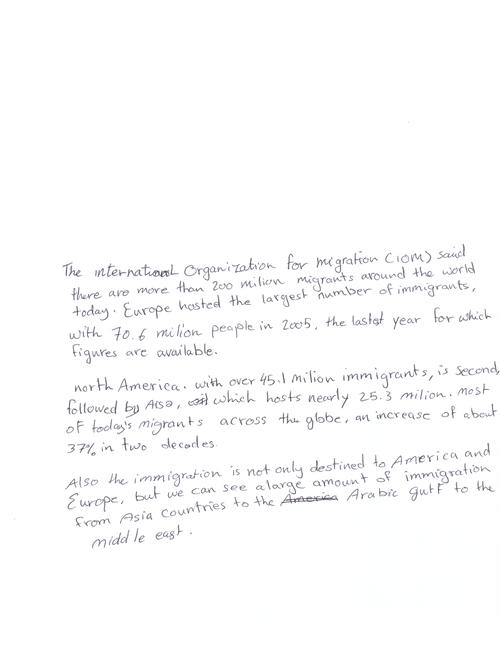 The international Organization for migration (IOM) said
there are more than 200 milion migrants around the world
today. Europe hosted the largest number of immigrants,
with 70.6 milion people in 2005, the lastst year for which
figures are available.
north America. with over 45.1 milion immigrants, is second,
followed by Aisa, which hosts nearly 25.3 milion. most
of today's migrants across the globe, an increase of about
37% in two decades.
Also the immigration is not only destined to America and
Europe, but we can see alarge amount of immigration
from Asia countries to the America Arabic gulf to the
middle east.